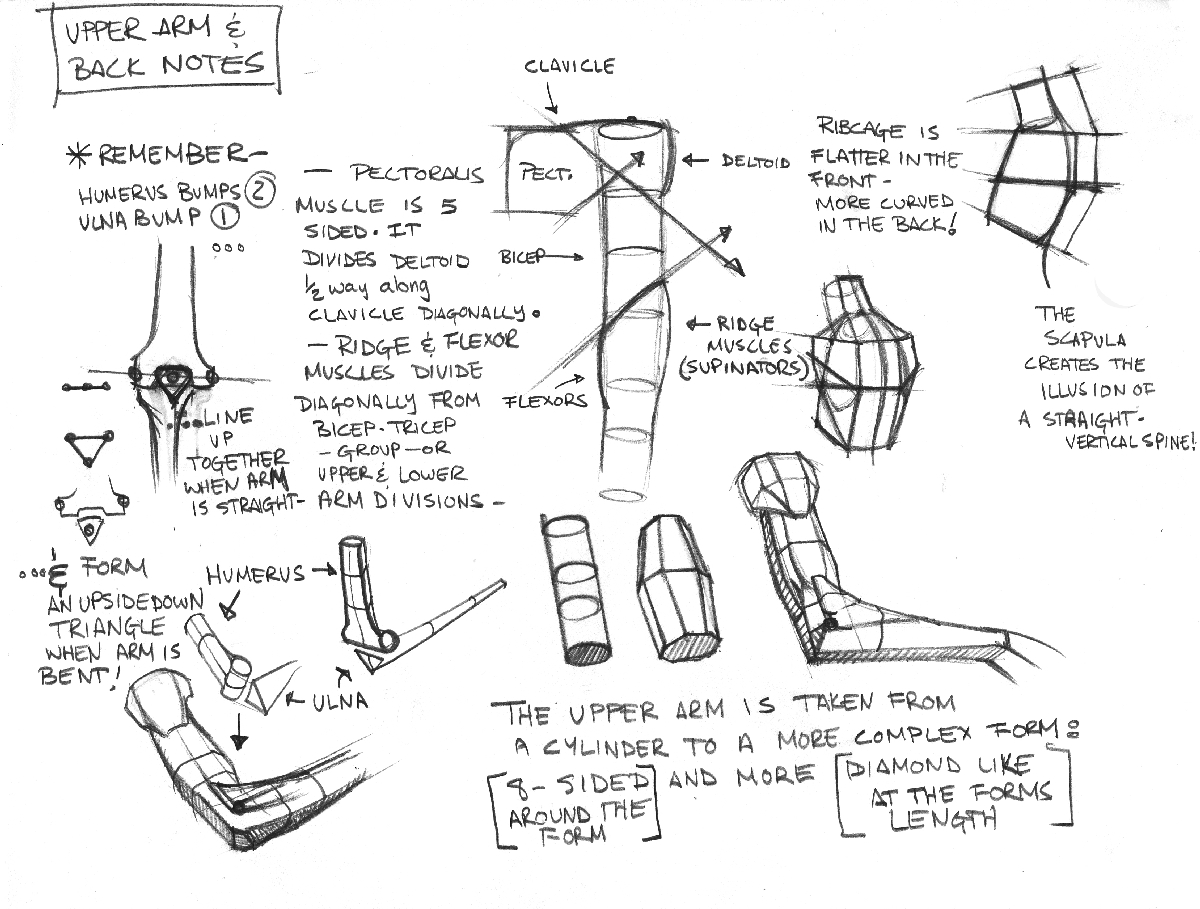 UPPER ARM &
BACK NOTES
* REMEMBER-
HUMERUS BUMPS ②
ULNA BUMP ①
LINE
UP
TOGETHER
WHEN ARM
IS STRAIGHT-
& FORM
AN UPSIDEDOWN
TRIANGLE
WHEN ARM IS
BENT!
— PECTORALIS
MUSCLE IS 5
SIDED. IT
DIVIDES DELTOID
½ way along
CLAVICLE DIAGONALLY.
— RIDGE & FLEXOR
MUSCLES DIVIDE
DIAGONALLY FROM
BICEP-TRICEP
-GROUP-OR
UPPER & LOWER
ARM DIVISIONS -
CLAVICLE
PECT.
DELTOID
BICEP
RIDGE
MUSCLES
(SUPINATORS)
FLEXORS
RIBCAGE IS
FLATTER IN THE
FRONT-
MORE CURVED
IN THE BACK!
THE
SCAPULA
CREATES THE
ILLUSION OF
A STRAIGHT-
VERTICAL SPINE!
HUMERUS
ULNA
THE UPPER ARM IS TAKEN FROM
A CYLINDER TO A MORE COMPLEX FORM:
[8-SIDED
AROUND THE
FORM]
AND MORE
[DIAMOND LIKE
AT THE FORMS
LENGTH]